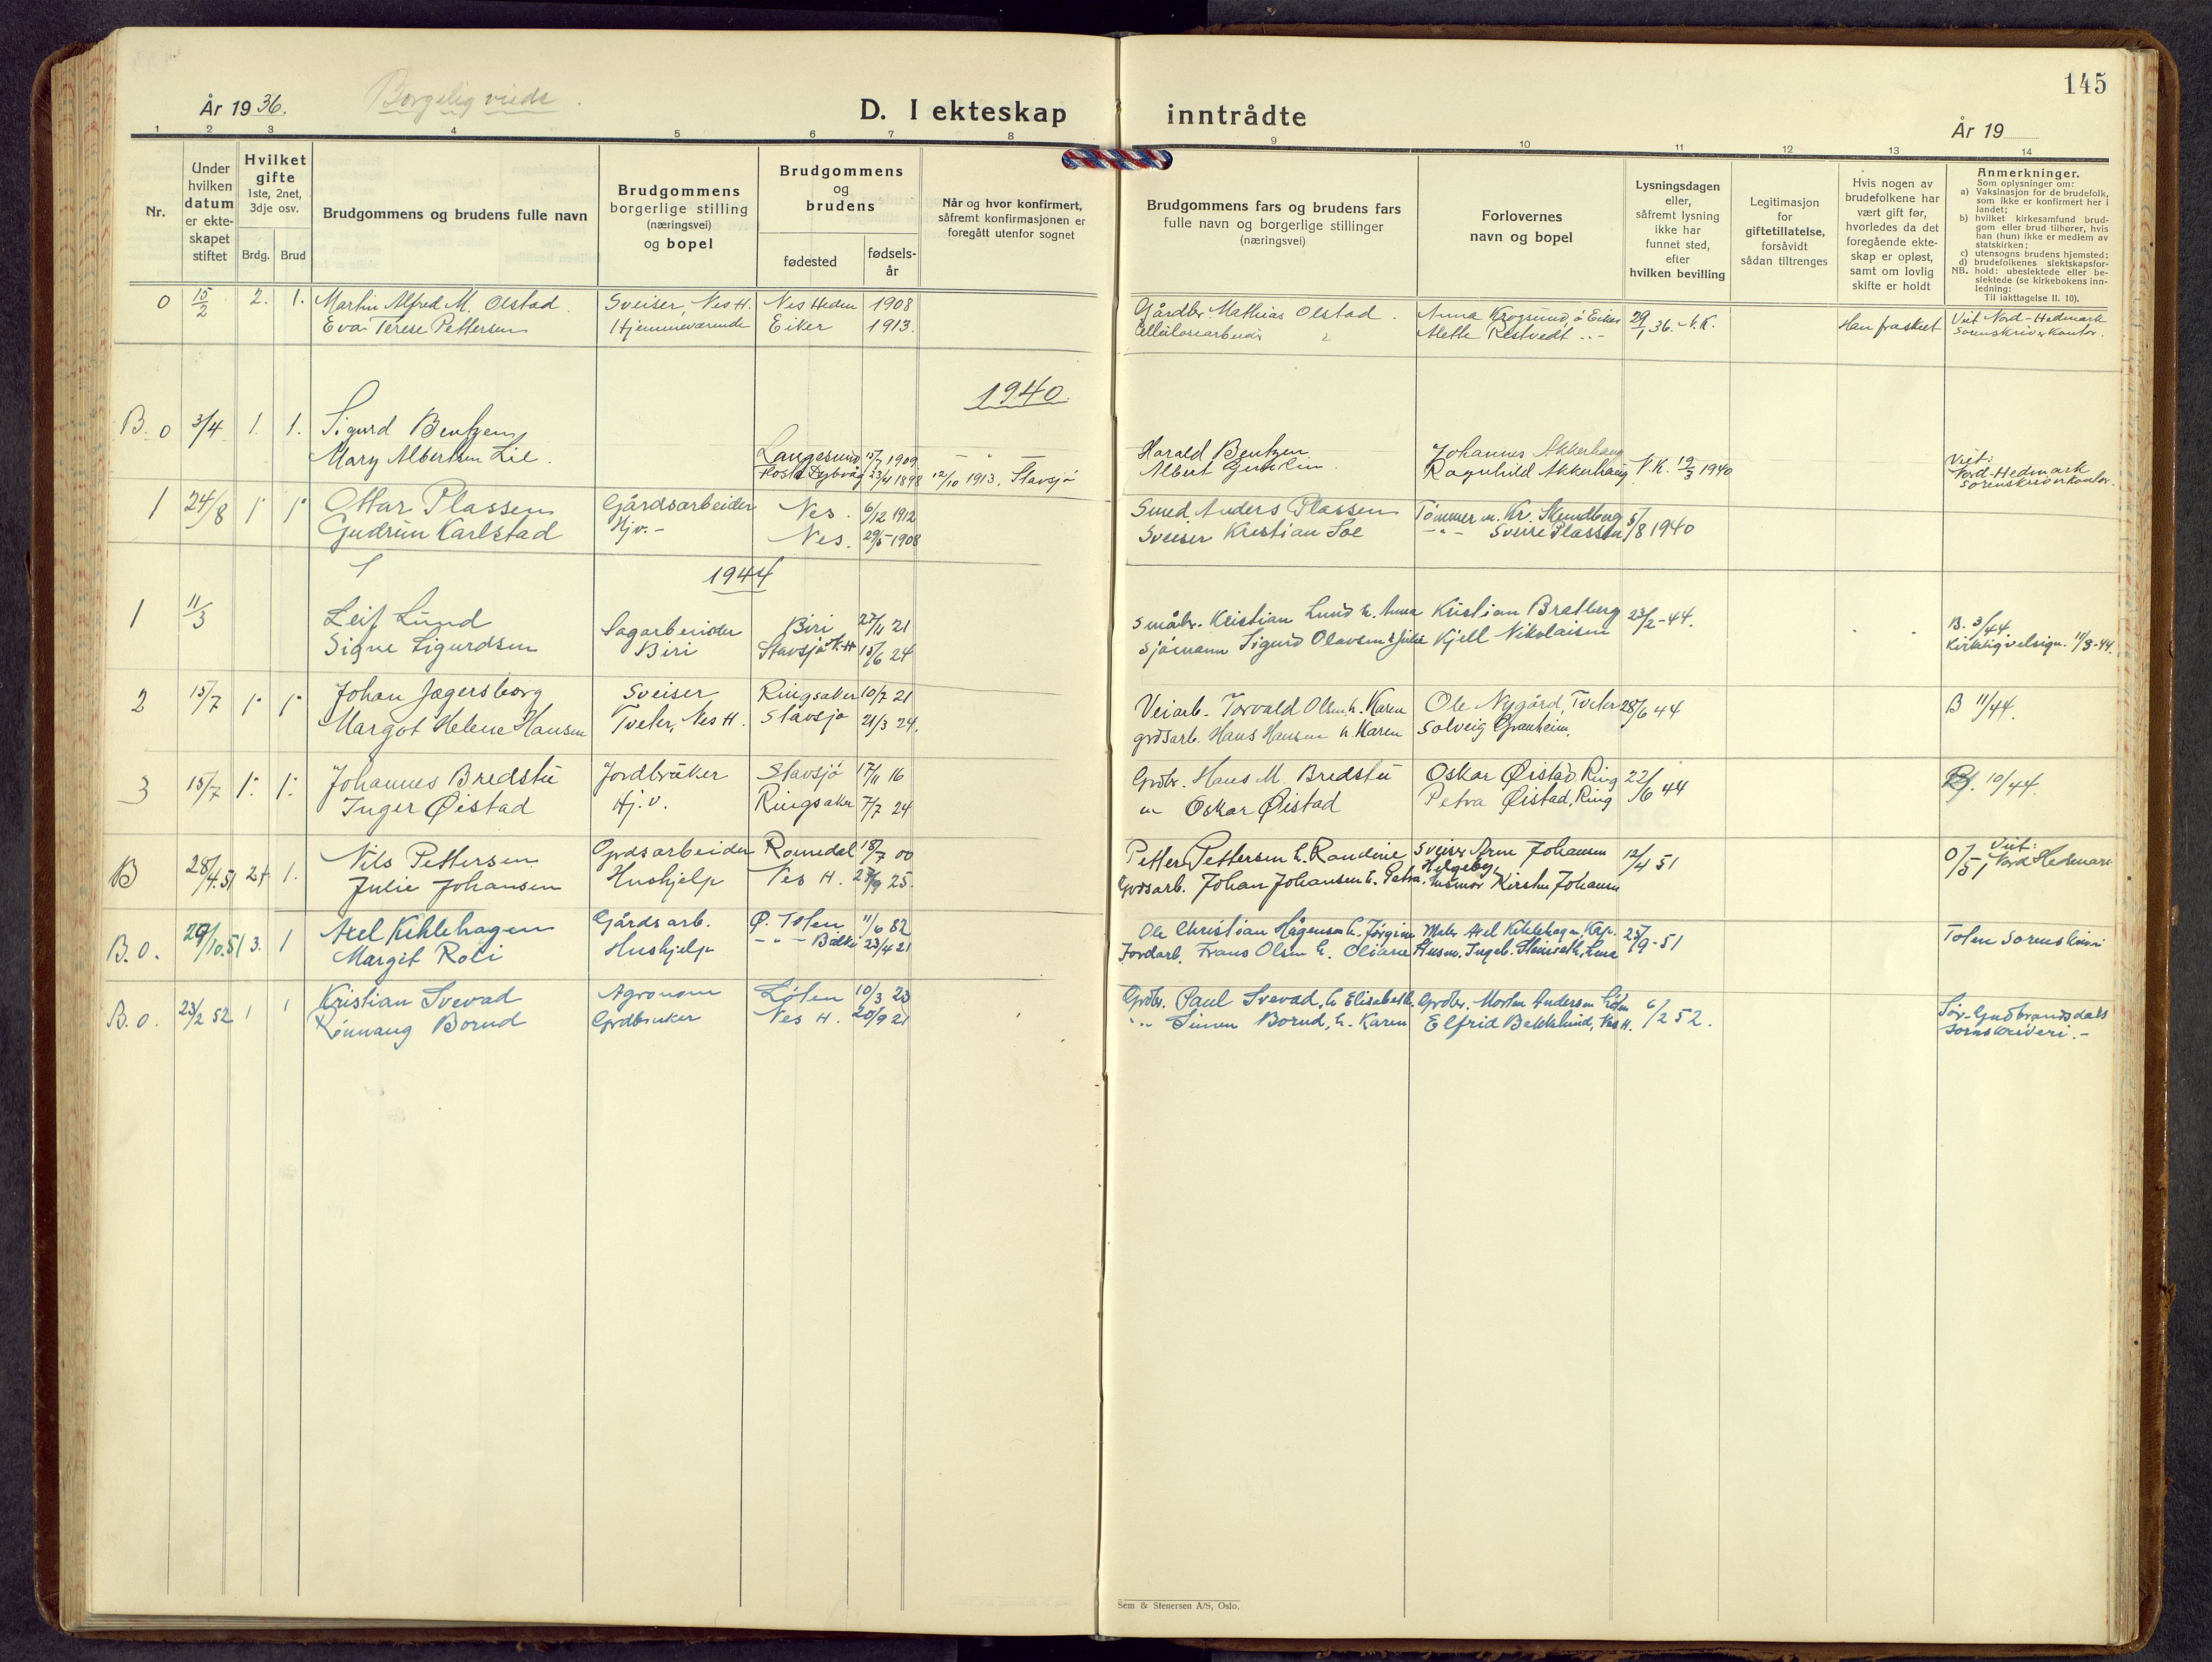 145
År 1936. Borgelig viede. D. I ekteskap inntrådte År 19
1 2 3 4 5 6 7 8 9 10 11 12 13 14
Nr.
Under hvilken datum er ekteskapet stiftet
Hvilket gifte 1ste, 2net, 3dje osv.
Brdg. Brud
Brudgommens og brudens fulle navn
Brudgommens borgerlige stilling (næringsvei) og bopel
Brudgommens og brudens
fødested fødsels-år
Når og hvor konfirmert, såfremt konfirmasjonen er foregått utenfor sognet
Brudgommens fars og brudens fars fulle navn og borgerlige stillinger (næringsvei)
Forlovernes navn og bopel
Lysningsdagen eller, såfremt lysning ikke har funnet sted, efter hvilken bevilling
Legitimasjon for giftetillatelse, forsåvidt sådan tiltrenges
Hvis nogen av brudefolkene har vært gift før, hvorledes da det foregående ekteskap er opløst, samt om lovlig skifte er holdt
Anmerkninger.
Som oplysninger om:
a) Vaksinasjon for de brudefolk, som ikke er konfirmert her i landet;
b) hvilket kirkesamfund brudgom eller brud tilhører, hvis han (hun) ikke er medlem av statskirken;
c) utensogns brudens hjemsted;
d) brudefolkenes slektskapsforhold: ubeslektede eller beslektede (se kirkebokens innledning:
NB. Til iakttagelse II. 10).
0 15/2 2. 1. Martin Alfred M. Olstad. Sveiser, Nes H. Nes Hedm 1908 Gårdbr. Mathias Olstad. Anna Krogsund, ö Eiker 29/1 36. V.K. Han fraskilt Viet Nord-Hedmark
Eva Terese Pettersen Hjemmeværende Eiker 1913. Cellulosearbeider Mette Restvedt Sorenskriverkontor.
1940.
B. 0 3/4 1. 1. Sigurd Bentzen Langesund 15/7 1909 Harald Bentzen Johannes Akkerhaug V.K. 19/3 1940 Viet:
Mary Albertsen Lie. 23/4 1898 12/10 1913. Stavsjø Albert Ragnhild Akkerhaug Nord-Hedmark Sorenskriverkontor.
1 24/8 1. 1. Ottar Plassen Gårdsarbeider Nes. 6/12 1912 Smed Anders Plassen Tømmerm. Kr. Skundberg 5/8 1940
Gudrun Karlstad Hjv.- Nes. 29/5 1908 Sveiser Kristian Soe -"- Sverre Plassen
1944
1 11/3 Leif Lund Sagarbeider Biri 27/11 21 Småbr. Kristian Lund h. Anna Kristian Bratberg 23/2-44. B. 3/44
Signe Sigurdsen Biri Stavsjø N.H 15/6 24 Sjömann Sigurd Olavsen h. Julie Kjell Nikolaisen Kirkelig velsign. 11/3-44.
2 15/7 1. 1. Johan Jægersborg Sveiser Ringsaker 10/7 21 Veiarb. Torvald Olsen h. Karen Ole Nygård, Tveter 28/6 44 B 11/44.
Margot Helene Hansen Tveter, Nes H. Stavsjø 21/3 24. grdsarb. Hans Hansen h. Karen Solveig Granheim.
3 15/7 1. 1. Johannes Bredstu Jordbruker Stavsjö 17/11 16 Grdbr. Hans M. Bredstu Oskar Øistad, Ring 22/6 44 B. 10/44.
Inger Øistad Hj.v. Ringsaker 7/7 24 " Oskar Øistad Petra Øistad, Ring
B 28/4 51 2 1. Nils Pettersen Grdsarbeider Romedal 18/7 00 Petter Pettersen h. Randine Sveiser Arne Johansen Helgeby, 12/4 51 0/51 Viet: Nord Hedmark
Julie Johansen Hushjelp Nes H. 25. Grdsarb. Johan Johansen h. Petra. husmor Kirsten Johansen
B. 0. 29/10.51 3. 1 Axel Kihlehagen Gårdsarb. Ø. Toten 11/6 82 Ole Christian Hågensen h. Jørgine Maler Axel Kihlehagen, Kap. 25/9-51 Toten Sorenskriveri
Margit Roli Hushjelp -"- Bälke 23/4 21 Jordarb. Frans Olsen h. Oliane Husm. Ingeb. Lena
B. 0. 23/2 52 1 1 Kristian Svevad Agronom Løten 10/3 23 Grdbr. Paul Svevad, h Elisabeth. Grdbr. Morten Andersen Løten 6/2 52. Sør-Gudbrandsdals
Rønnaug Borud Grdbruker Nes H. 20/9 21 -"- Simen Borud, h. Karen Elfrid Bakkelund, Nes H. Sorenskriveri.-
Sem & Stenersen A/S, Oslo.